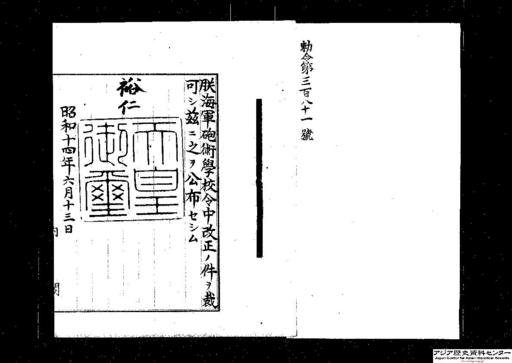 勅令第三百八十一號
朕海軍砲術學校令中改正ノ件ヲ裁
可シ茲ニ之ヲ公布セシム
裕仁
天皇
御璽
昭和十四年六月十三日
内
閣
アジア歴史資料センター
Japan Center for Asian Historical Records